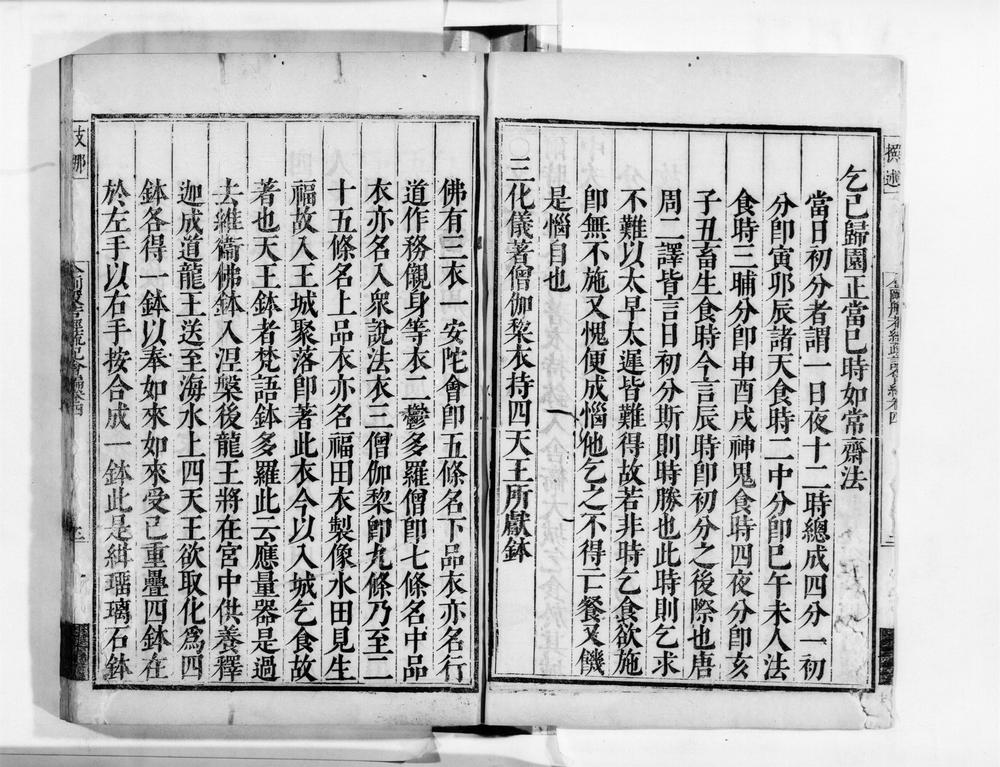 撰述
乞已歸園正當巳時如常齋法
當日初分者謂一日夜十二時總成四分一初
分卽寅卯辰諸天食時二中分卽巳午未人法
食時三晡分卽申酉戌神鬼食時四夜分卽亥
子丑畜生食時今言辰時卽初分之後際也唐
周二譯皆言日初分斯則時勝也此時則乞求
不難以太早太遲皆難得故若非時乞食欲施
卽無不施又愧便成惱他乞之不得亡餐又饑
是惱自也
○三化儀著僧伽黎衣持四天王所獻鉢
佛有三衣一安陀會卽五條名下品衣亦名行
道作務儭身等衣二鬱多羅僧卽七條名中品
衣亦名入衆說法衣三僧伽黎卽九條乃至二
十五條名上品衣亦名福田衣製像水田見生
福故入王城聚落卽著此衣今以入城乞食故
著也天王鉢者梵語鉢多羅此云應量器是過
去維衞佛鉢入涅槃後龍王將在宮中供養釋
迦成道龍王送至海水上四天王欲取化爲四
鉢各得一鉢以奉如來如來受已重疊四鉢在
於左手以右手按合成一鉢此是紺瑠璃石鉢
支那